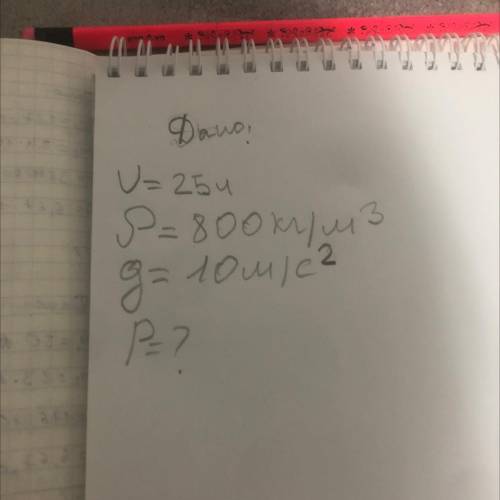 Дано:
V = 25л
ρ = 800 кг/м³
g = 10 м/с²
P = ?